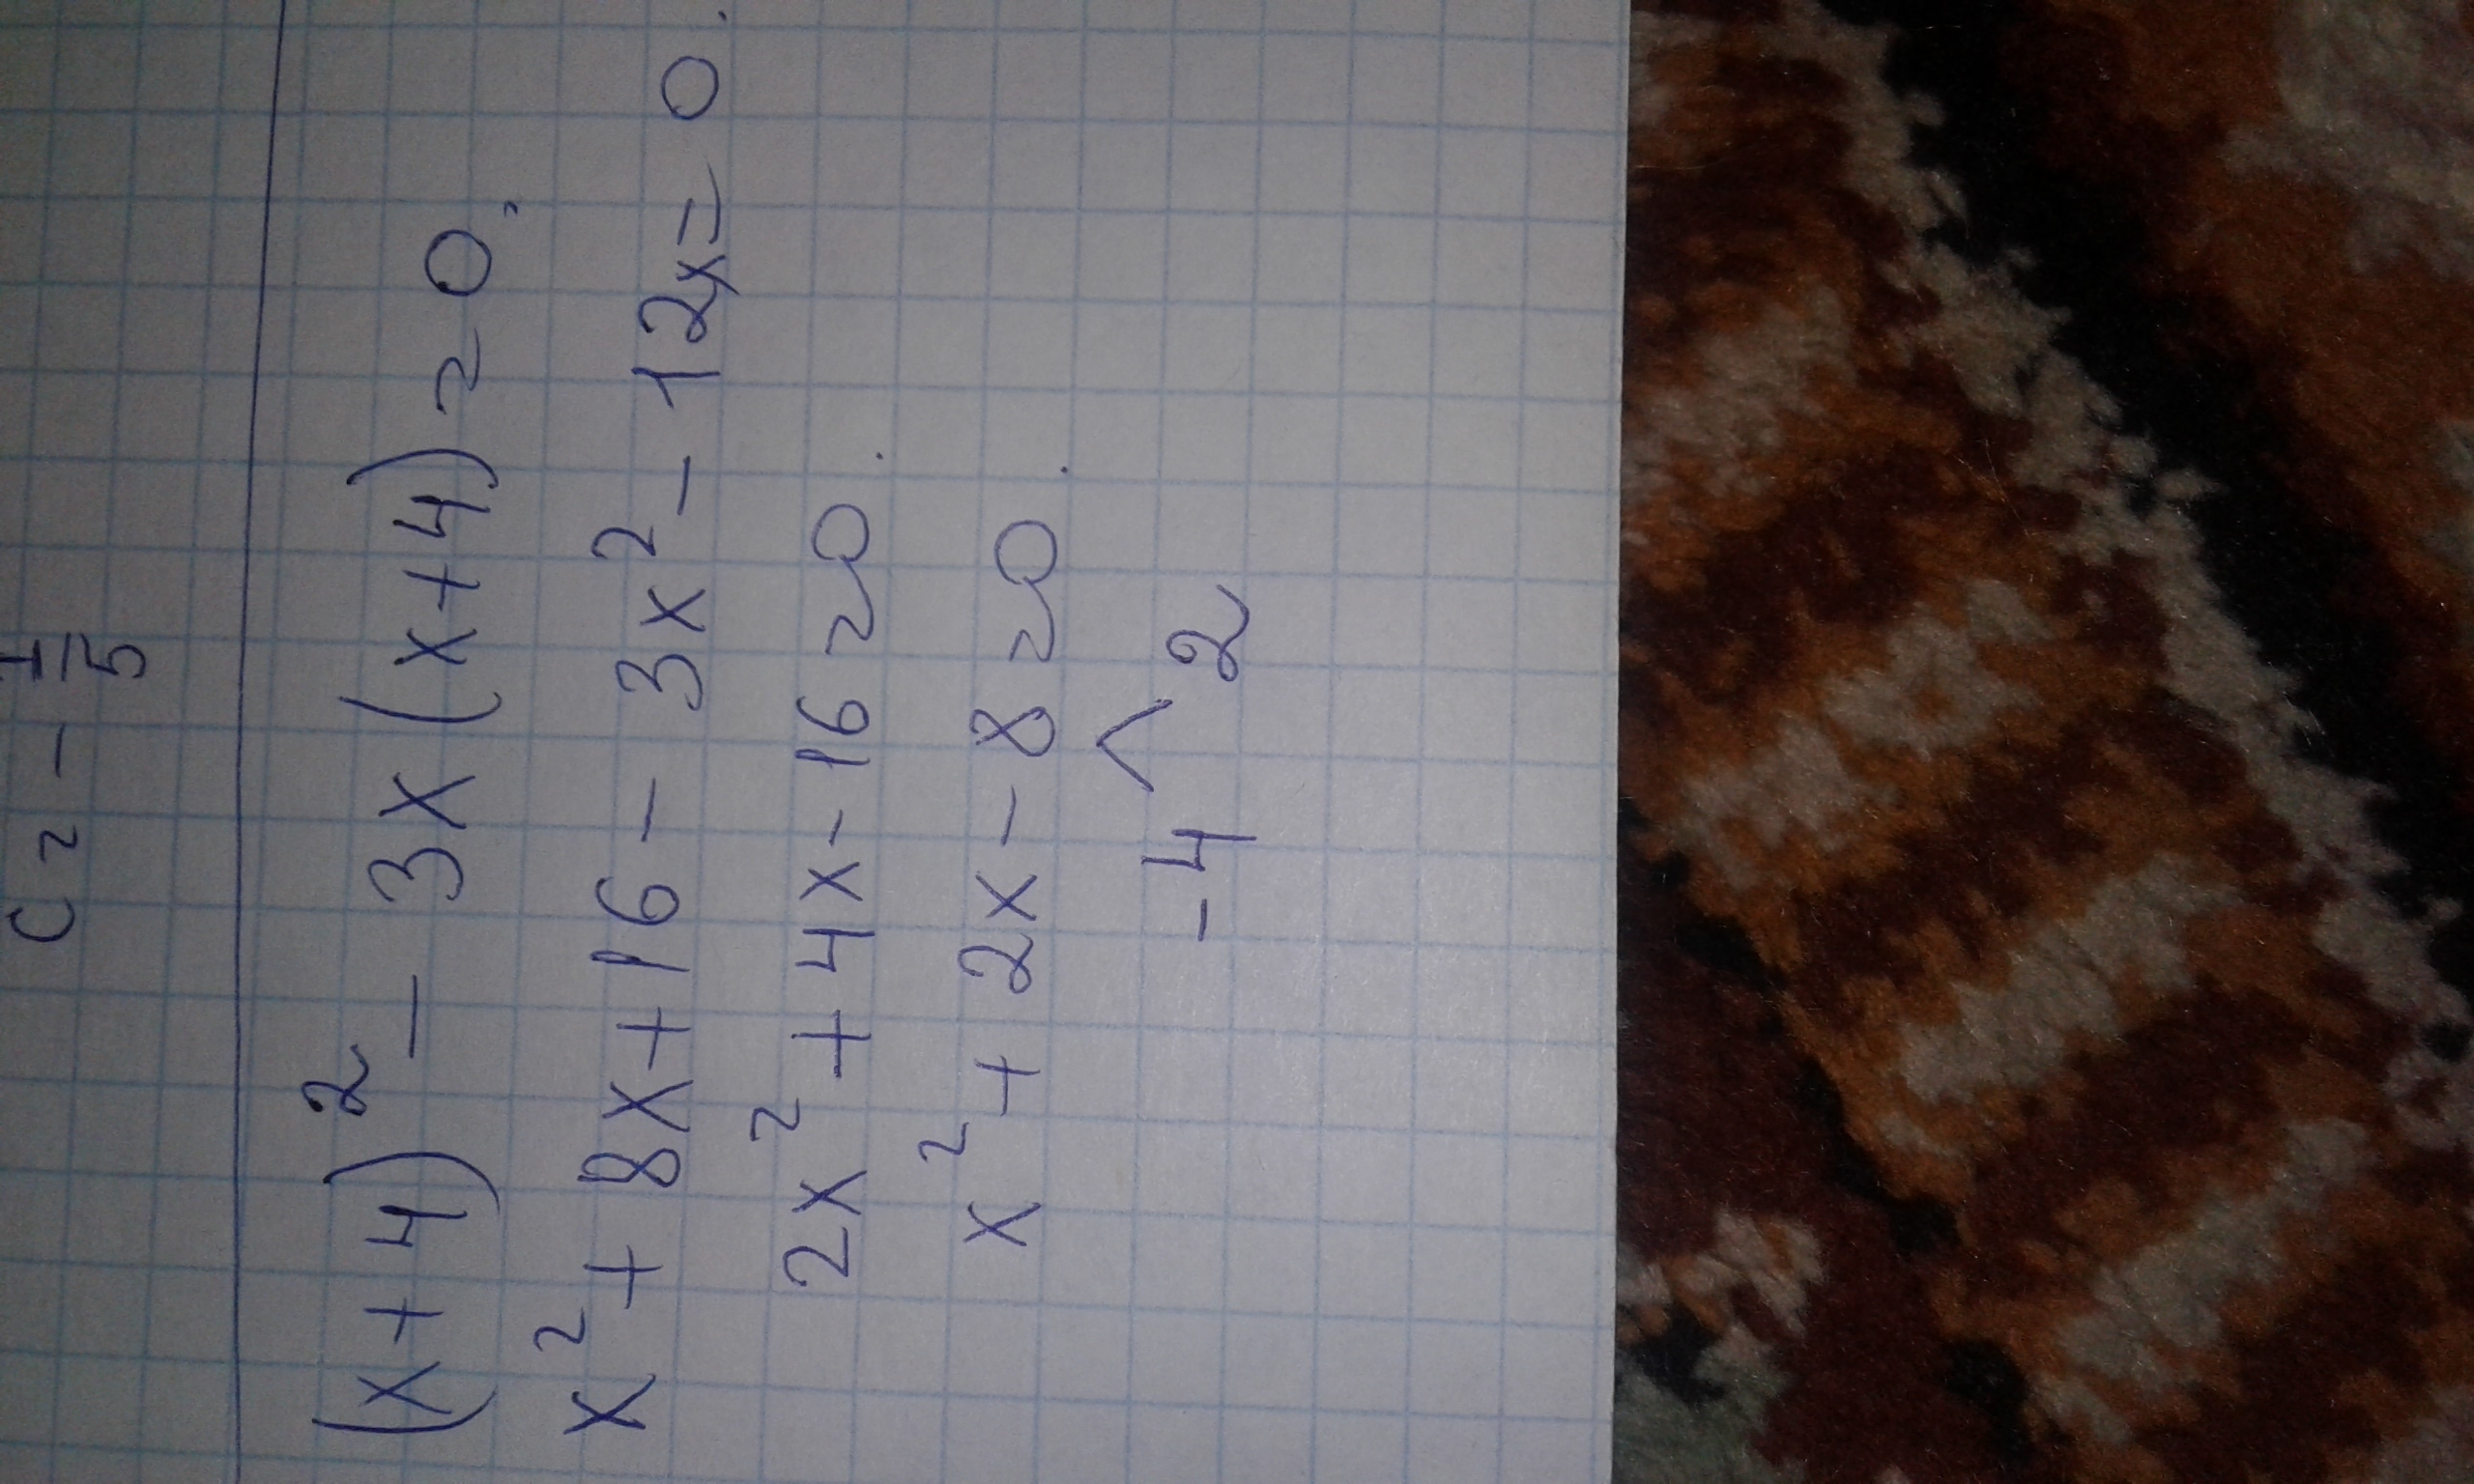 c = - 1/5
(x+4)² - 3x(x+4) = 0.
x² + 8x + 16 - 3x² - 12x = 0.
2x² + 4x - 16 = 0.
x² + 2x - 8 = 0.
-4 ^ 2